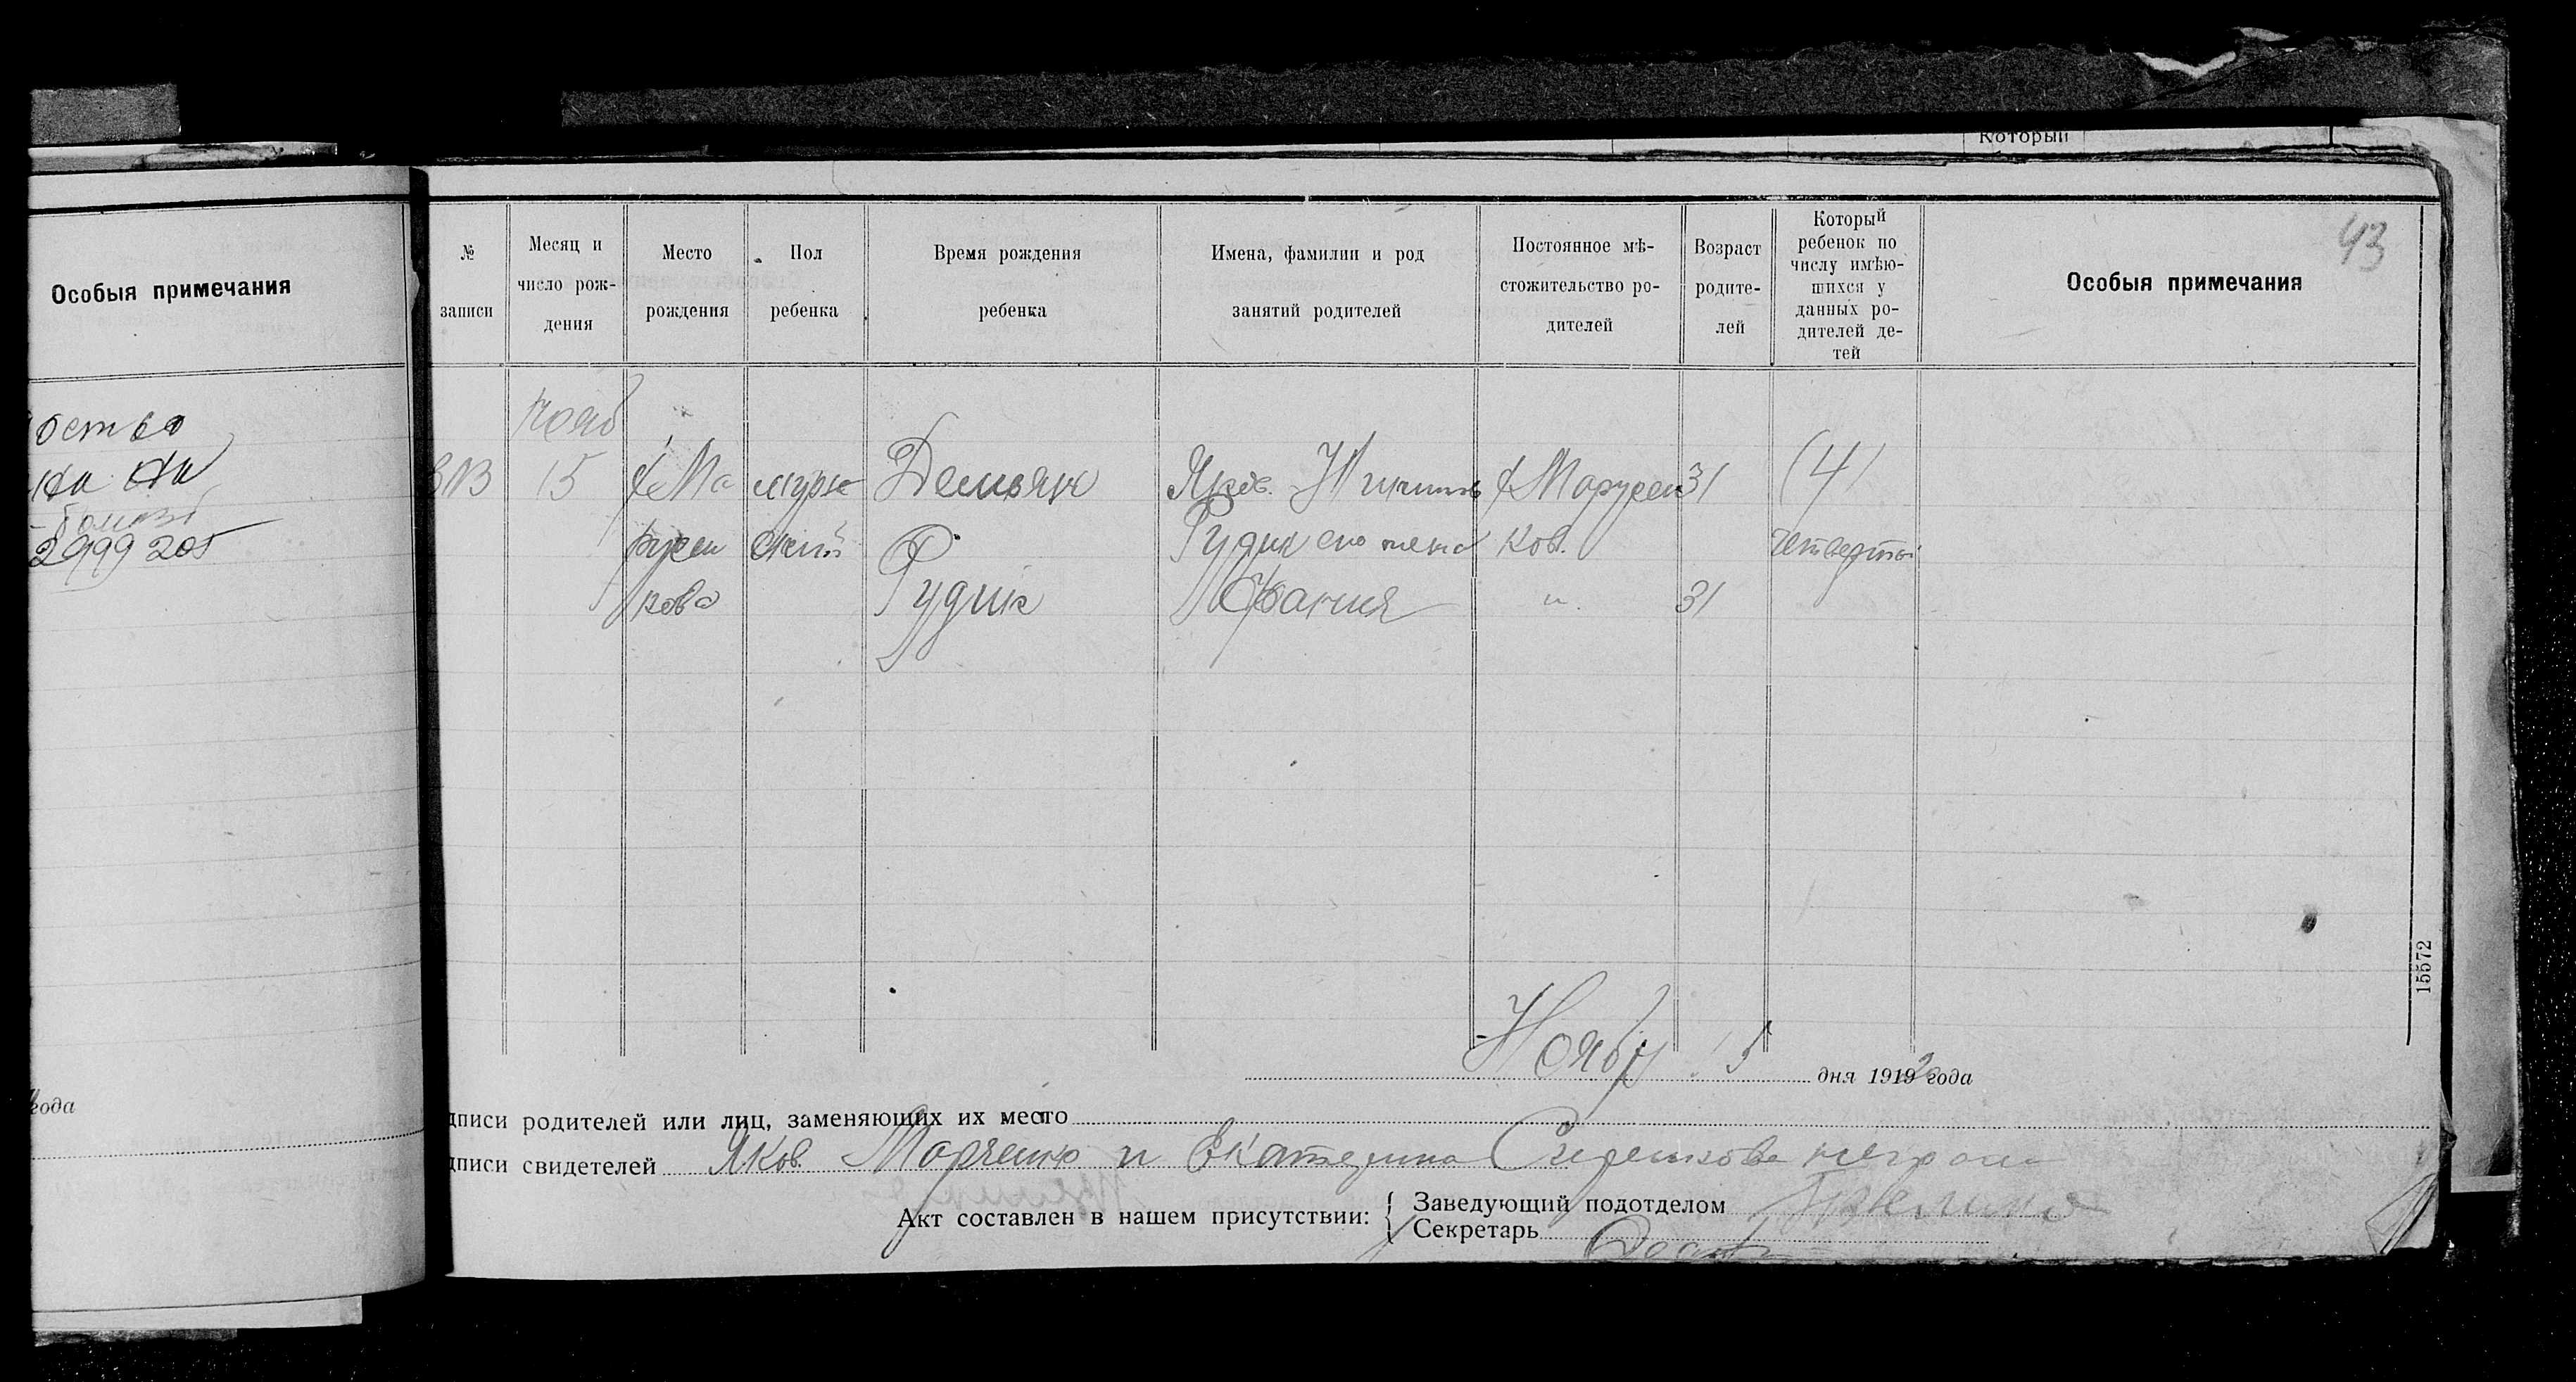 Который
Особыя примечания
ство
2999 205
года
43
№ записи
Месяц и число рож-дения
Место рождения
Пол ребенка
Время рождения ребенка
Имена, фамилии и род занятий родителей
Постоянное мѣ-стожительство ро-дителей
Возраст родите-лей
Который ребенок по числу имѣю-шихся у данных ро-дителей де-тей
Особыя примечания
Нояб
15 х Ма мужс Демьян Яков. Никитов х Марусен 31 (4)
русен ской Рудик его жена ков. четверты
кова Рудик Фания " 31
15572
Ноябр 15 дня 1919 2 года
дписи родителей или лиц, заменяющих их место
дписи свидетелей Яков Марченко и Екатерина
Акт составлен в нашем присутствии: { Заведующий подотделом
Секретарь